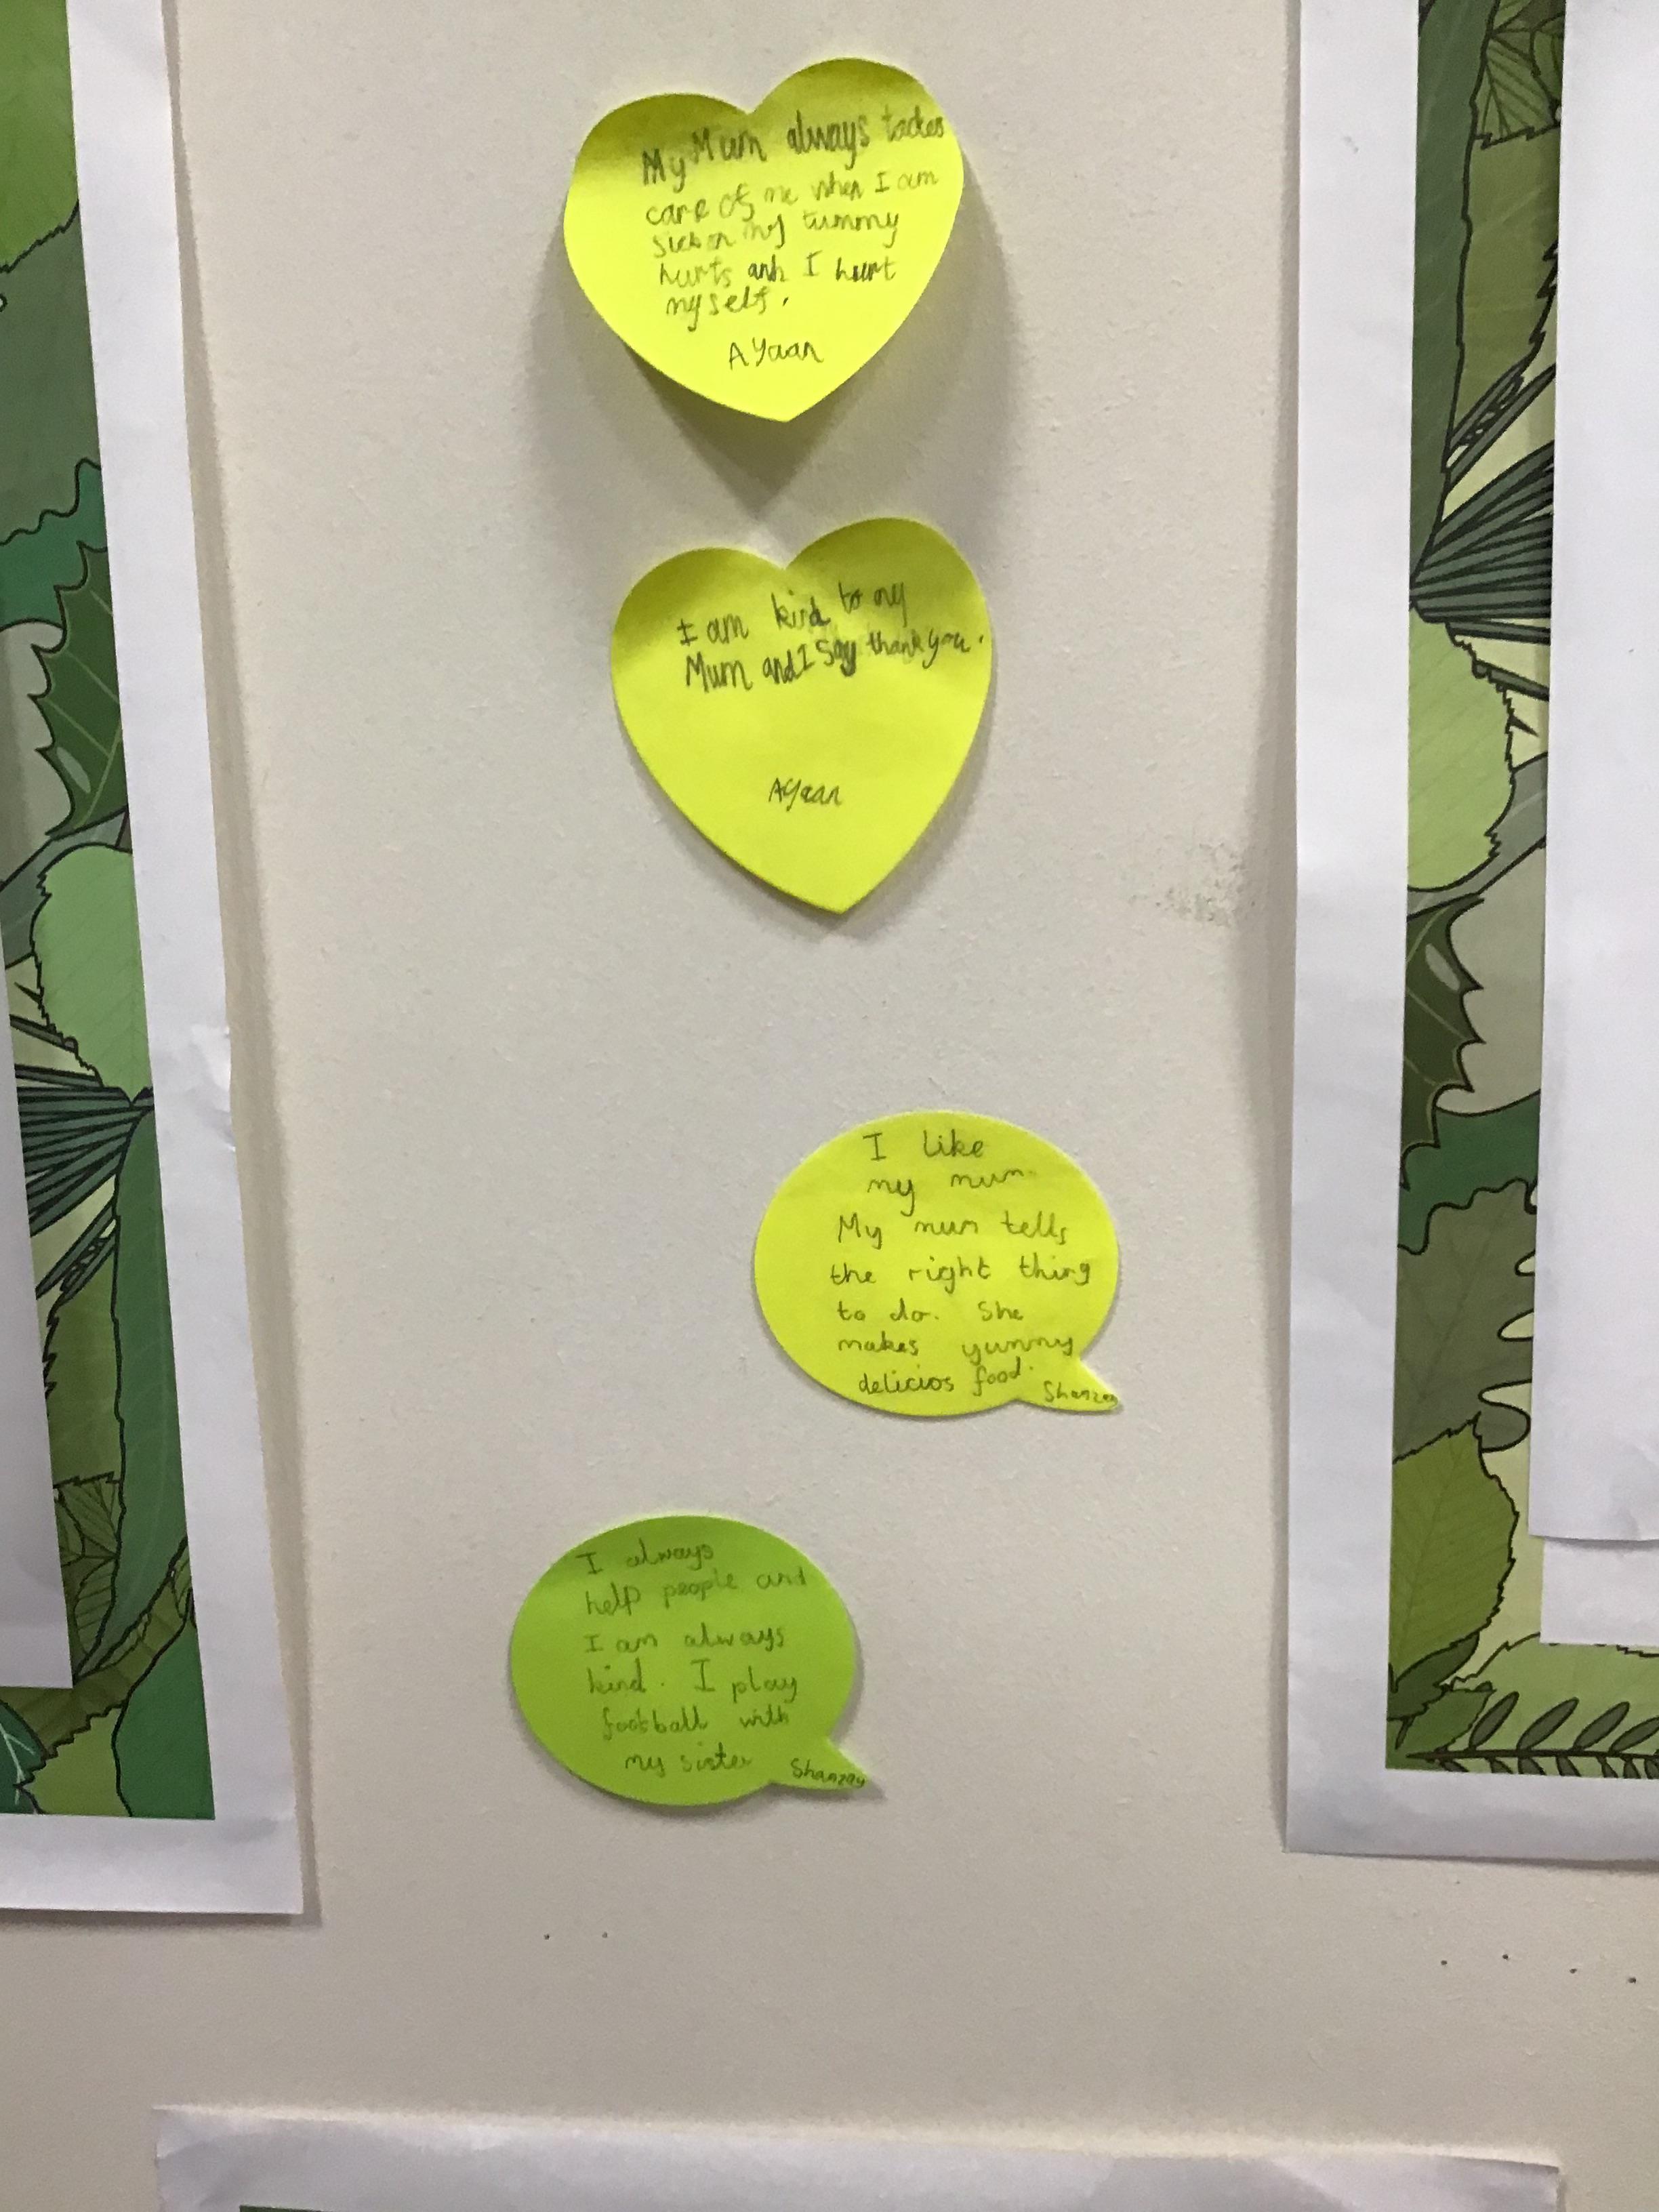 My Mum always tackes
care of me when I am
sick or my tummy
hurts anh I hurt
myself.
AYaan
I am kind to my
Mum and I Say thank you.
AYaan
I like
my mum
My mum tells
the right thing
to do. She
makes yummy
delicios food.
Shanzay
I always
help people and
I am always
kind. I play
football with
my sister
Shanzay